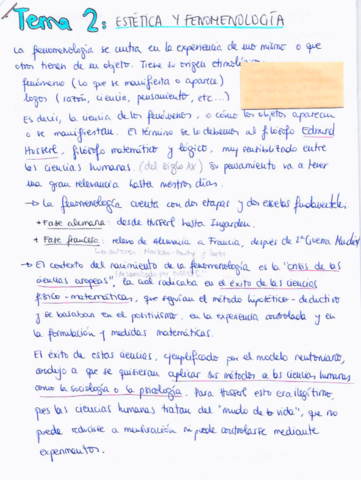 Tema 2: ESTÉTICA Y FENOMENOLOGÍA
La fenomenología se centra en la experiencia de uno mismo o que
otros tienen de un objeto. Tiene su origen etimológico
fenómeno (lo que se manifiesta o aparece)
logos (razón, ciencia, pensamiento, etc...)
Es decir, la ciencia de los fenómenos, o cómo los objetos aparecen
o se manifiestan. El término se lo debemos al filósofo Edmund
Husserl, filósofo matemático y lógico, muy reivindicado entre
las ciencias humanas. (del siglo XX) Su pensamiento va a tener
una gran relevancia hasta nuestros días.
→ La fenomenología cuenta con dos etapas y dos escuelas fundamentales:
+ Fase alemana: desde Husserl hasta Ingarden.
+ Fase francesa: relevo de Alemania a Francia, después de 2ª Guerra Mundial
Merleau-Ponty y Sartre
→ El contexto del nacimiento de la fenomenología es la "crisis de las
ciencias europeas", la cual radicaba en el éxito de las ciencias
físico-matemáticas, que seguían el método hipotético-deductivo
y se basaban en el positivismo, en la experiencia controlada y en
la formulación y medidas matemáticas.
El éxito de estas ciencias, ejemplificado por el modelo newtoniano,
condujo a que se quisieran aplicar sus métodos a las ciencias humanas
como la sociología o la psicología. Para Husserl esto era ilegítimo,
pues las ciencias humanas tratan del "mundo de la vida", que no
puede reducirse a matematización ni puede controlarse mediante
experimentos.